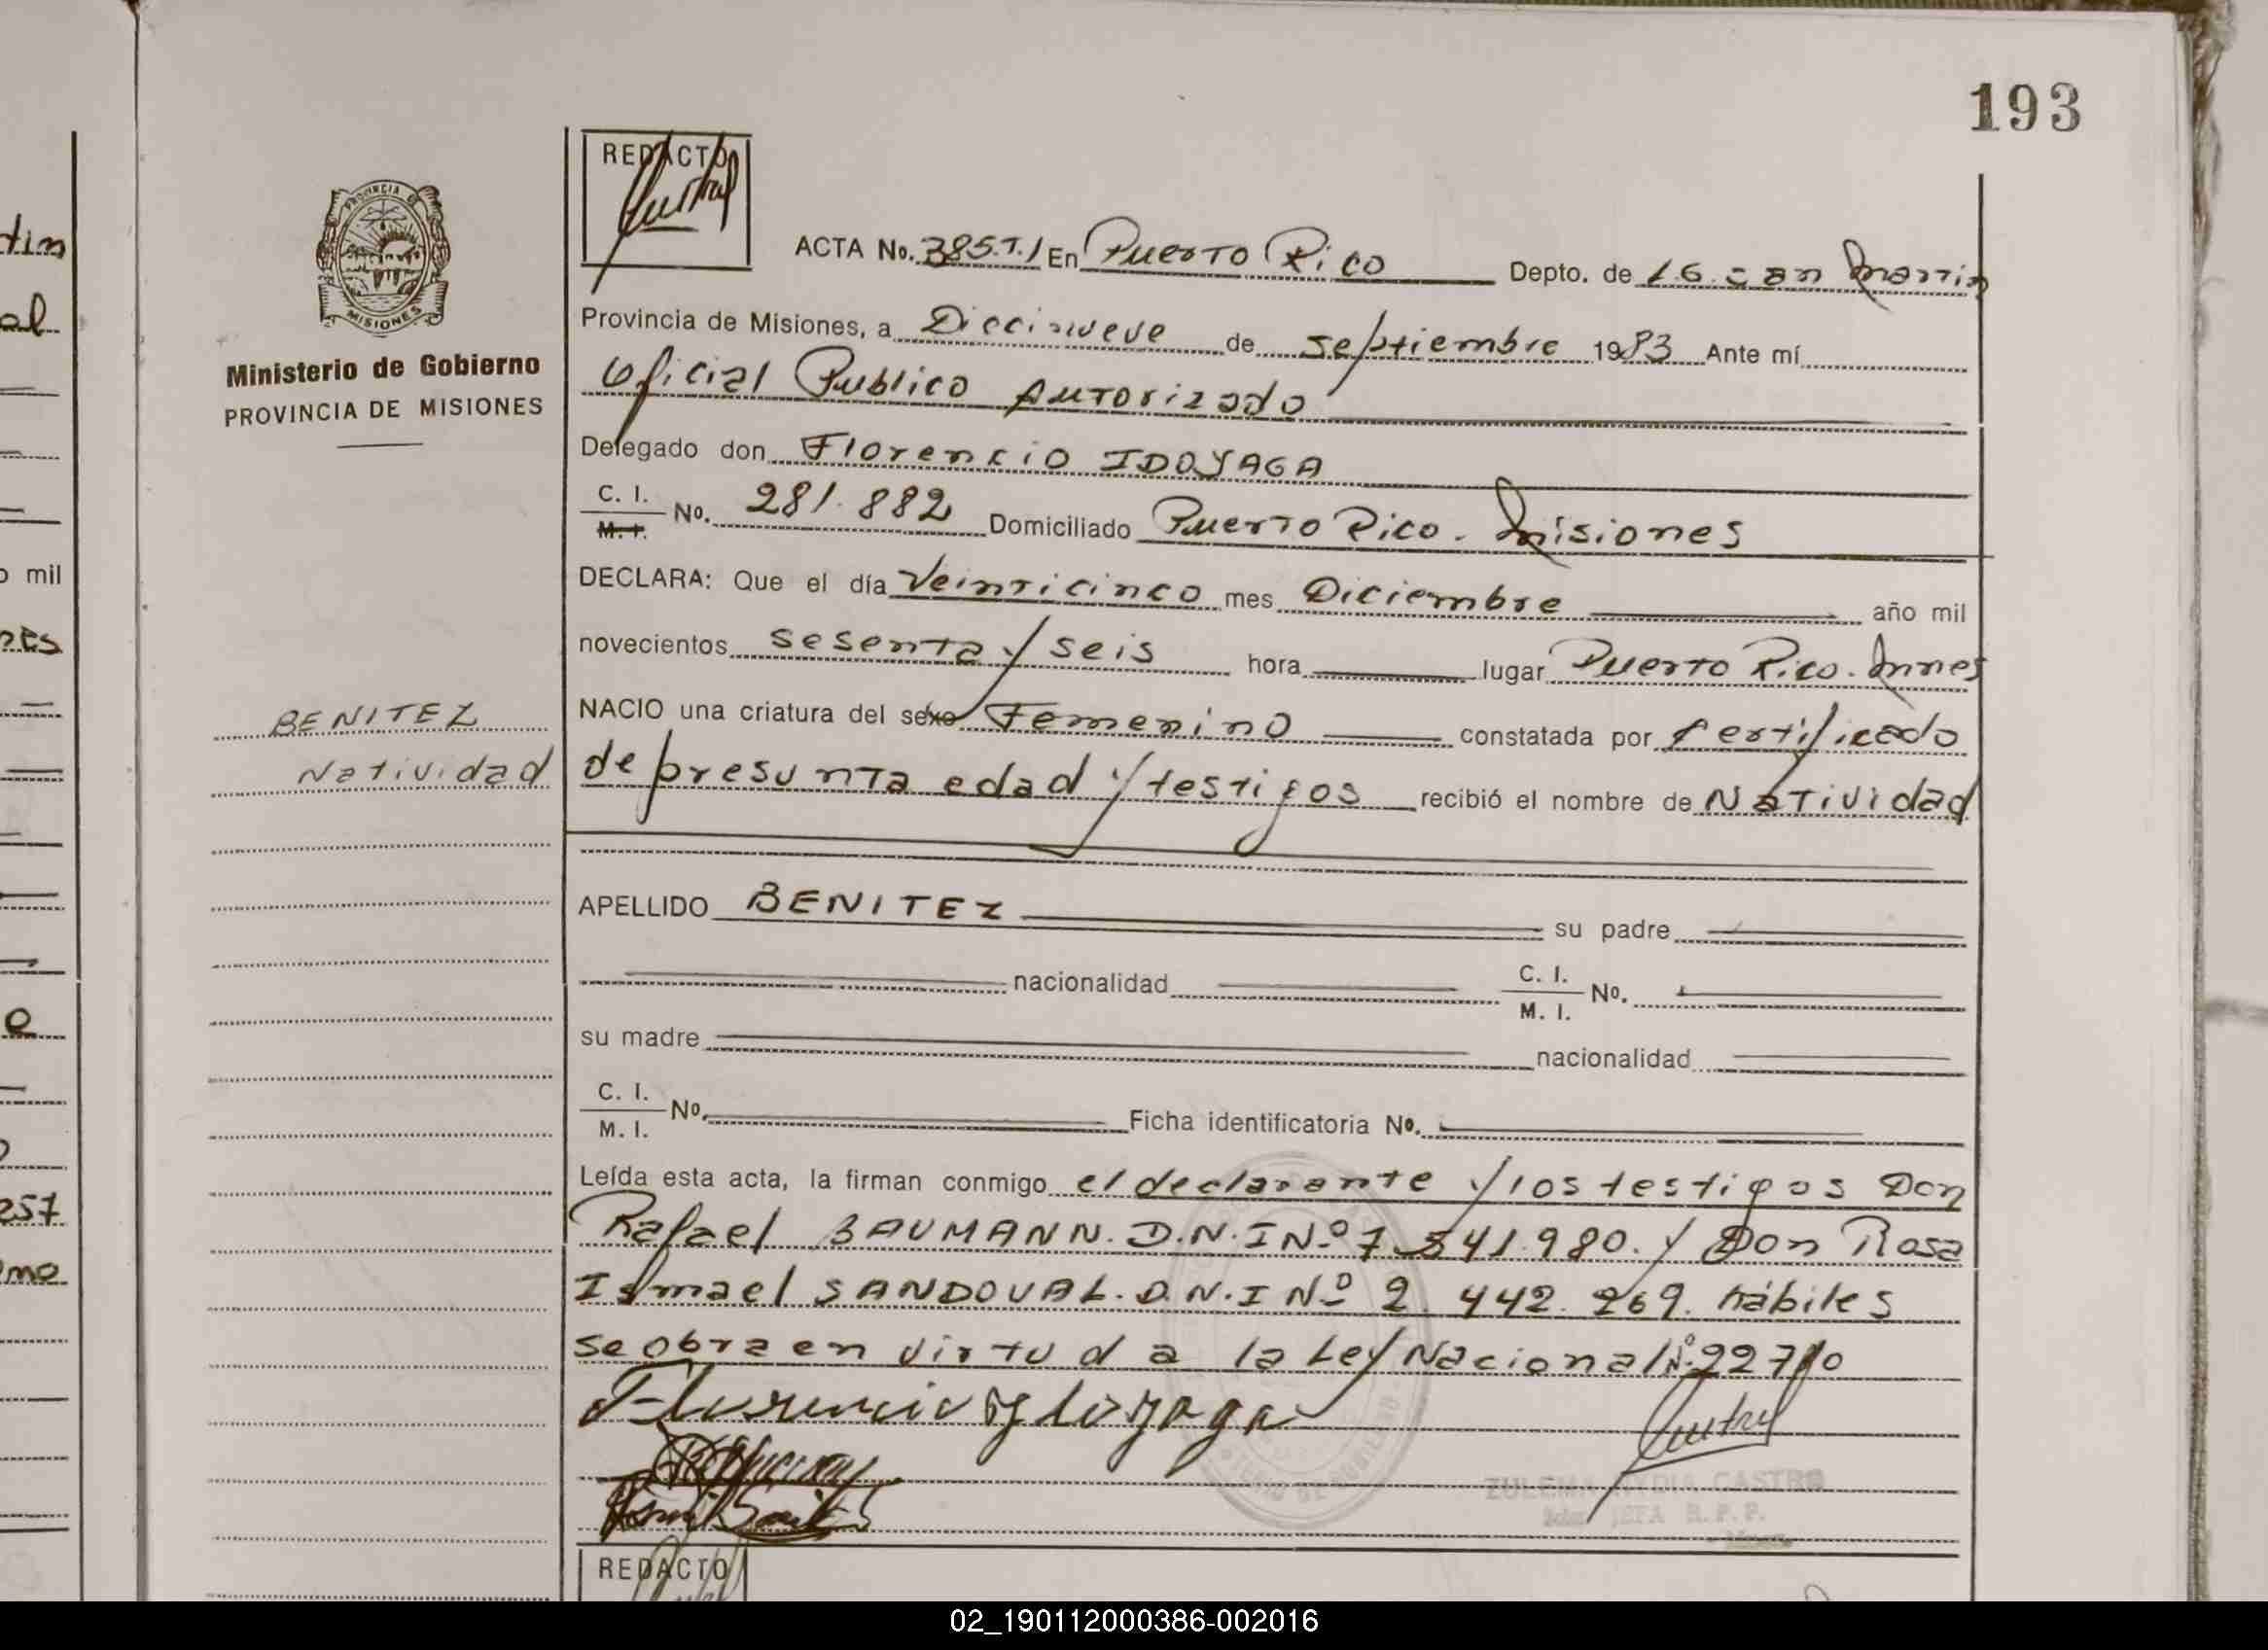 193
REDACTO
ACTA No. 385.T.I En Puerto Rico Depto. de L.G. San Martin
Provincia de Misiones, a Diecinueve de septiembre 1983 Ante mí
Oficial Publico Autorizado
Delegado don Florencio IDOYAGA
C. I.
M. I. No. 281.882 Domiciliado Puerto Rico. Misiones
DECLARA: Que el día Veinticinco mes Diciembre año mil
novecientos sesenta y seis hora lugar Puerto Rico. Mnes
NACIO una criatura del sexo Femenino constatada por Certificado
de presunta edad y testigos recibió el nombre de Natividad
APELLIDO BENITEZ su padre
nacionalidad C. I.
M. I. No.
su madre nacionalidad
C. I.
M. I. No. Ficha identificatoria No.
Leída esta acta, la firman conmigo el declarante y los testigos Don
Rafael BAUMANN. D.N.I Nº 7.541.980. y Don Rosa
Ismael SANDOVAL. D.N.I Nº 2.442.269. hábiles
se obra en virtud a la Ley Nacional Nº 22710
Florencio Idoyaga
ZULEMA NYDIA CASTRO
JEFA R. P. P.
REDACTO
PROVINCIA DE
MISIONES
Ministerio de Gobierno
PROVINCIA DE MISIONES
BENITEZ
Natividad
tin
al
o mil
nes
e
257
mo
02_190112000386-002016